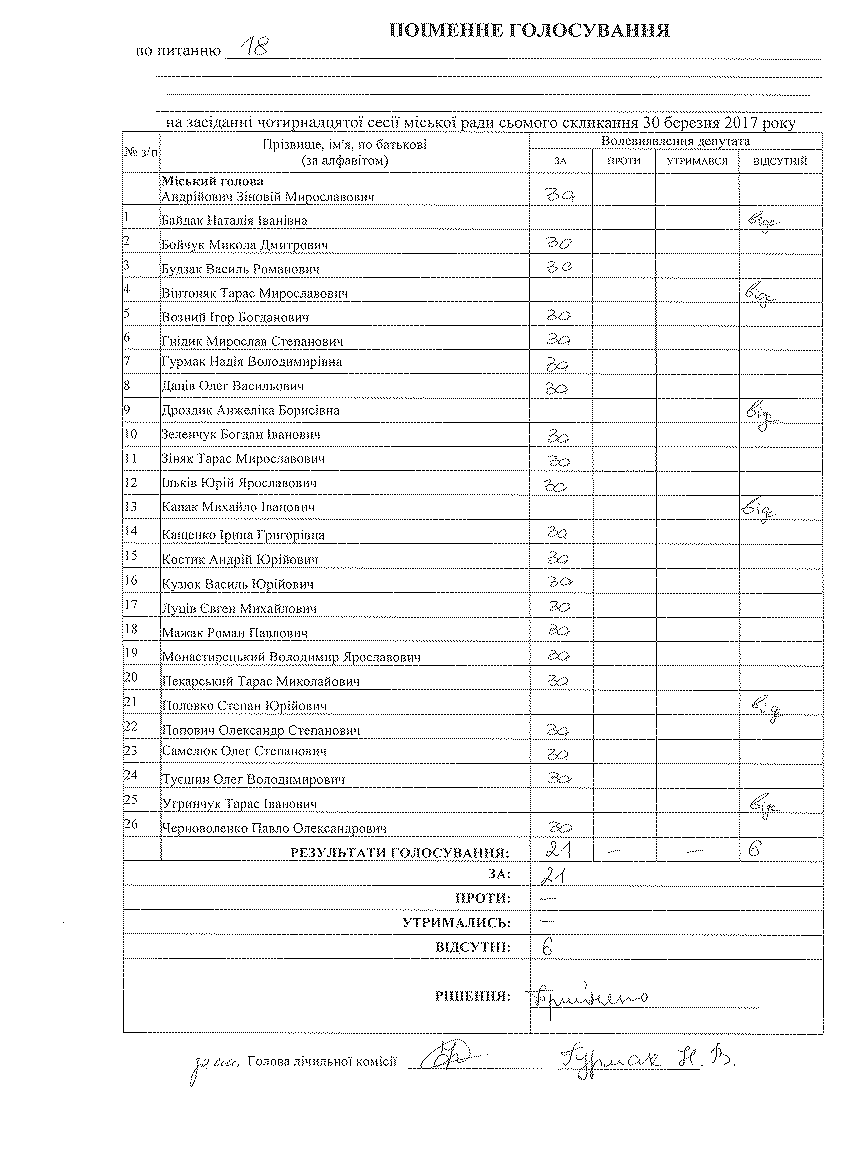 ПОІМЕННЕ ГОЛОСУВАННЯ
по питанню 18
на засіданні чотирнадцятої сесії міської ради сьомого скликання 30 березня 2017 року
№ з/п Прізвище, ім'я, по батькові (за алфавітом) Волевиявлення депутата
ЗА ПРОТИ УТРИМАВСЯ ВІДСУТНІЙ
Міський голова
Андрійович Зіновій Мирославович за
1 Байдак Наталія Іванівна від
2 Бойчук Микола Дмитрович за
3 Будзак Василь Романович за
4 Вінтоняк Тарас Мирославович від
5 Возний Ігор Богданович за
6 Гнідик Мирослав Степанович за
7 Гурмак Надія Володимирівна за
8 Даців Олег Васильович за
9 Дроздик Анжеліка Борисівна від
10 Зеленчук Богдан Іванович за
11 Зіняк Тарас Мирославович за
12 Ільків Юрій Ярославович за
13 Капак Михайло Іванович від
14 Кащенко Ірина Григорівна за
15 Костик Андрій Юрійович за
16 Кузюк Василь Юрійович за
17 Луців Євген Михайлович за
18 Мажак Роман Павлович за
19 Монастирецький Володимир Ярославович за
20 Пекарський Тарас Миколайович за
21 Половко Степан Юрійович від
22 Попович Олександр Степанович за
23 Самелюк Олег Степанович за
24 Туєшин Олег Володимирович за
25 Угринчук Тарас Іванович від
26 Черноволенко Павло Олександрович за
РЕЗУЛЬТАТИ ГОЛОСУВАННЯ: 21 — — 6
ЗА: 21
ПРОТИ: —
УТРИМАЛИСЬ: —
ВІДСУТНІ: 6
РІШЕННЯ: Прийнято
Голова лічильної комісії Гурмак Н. В.